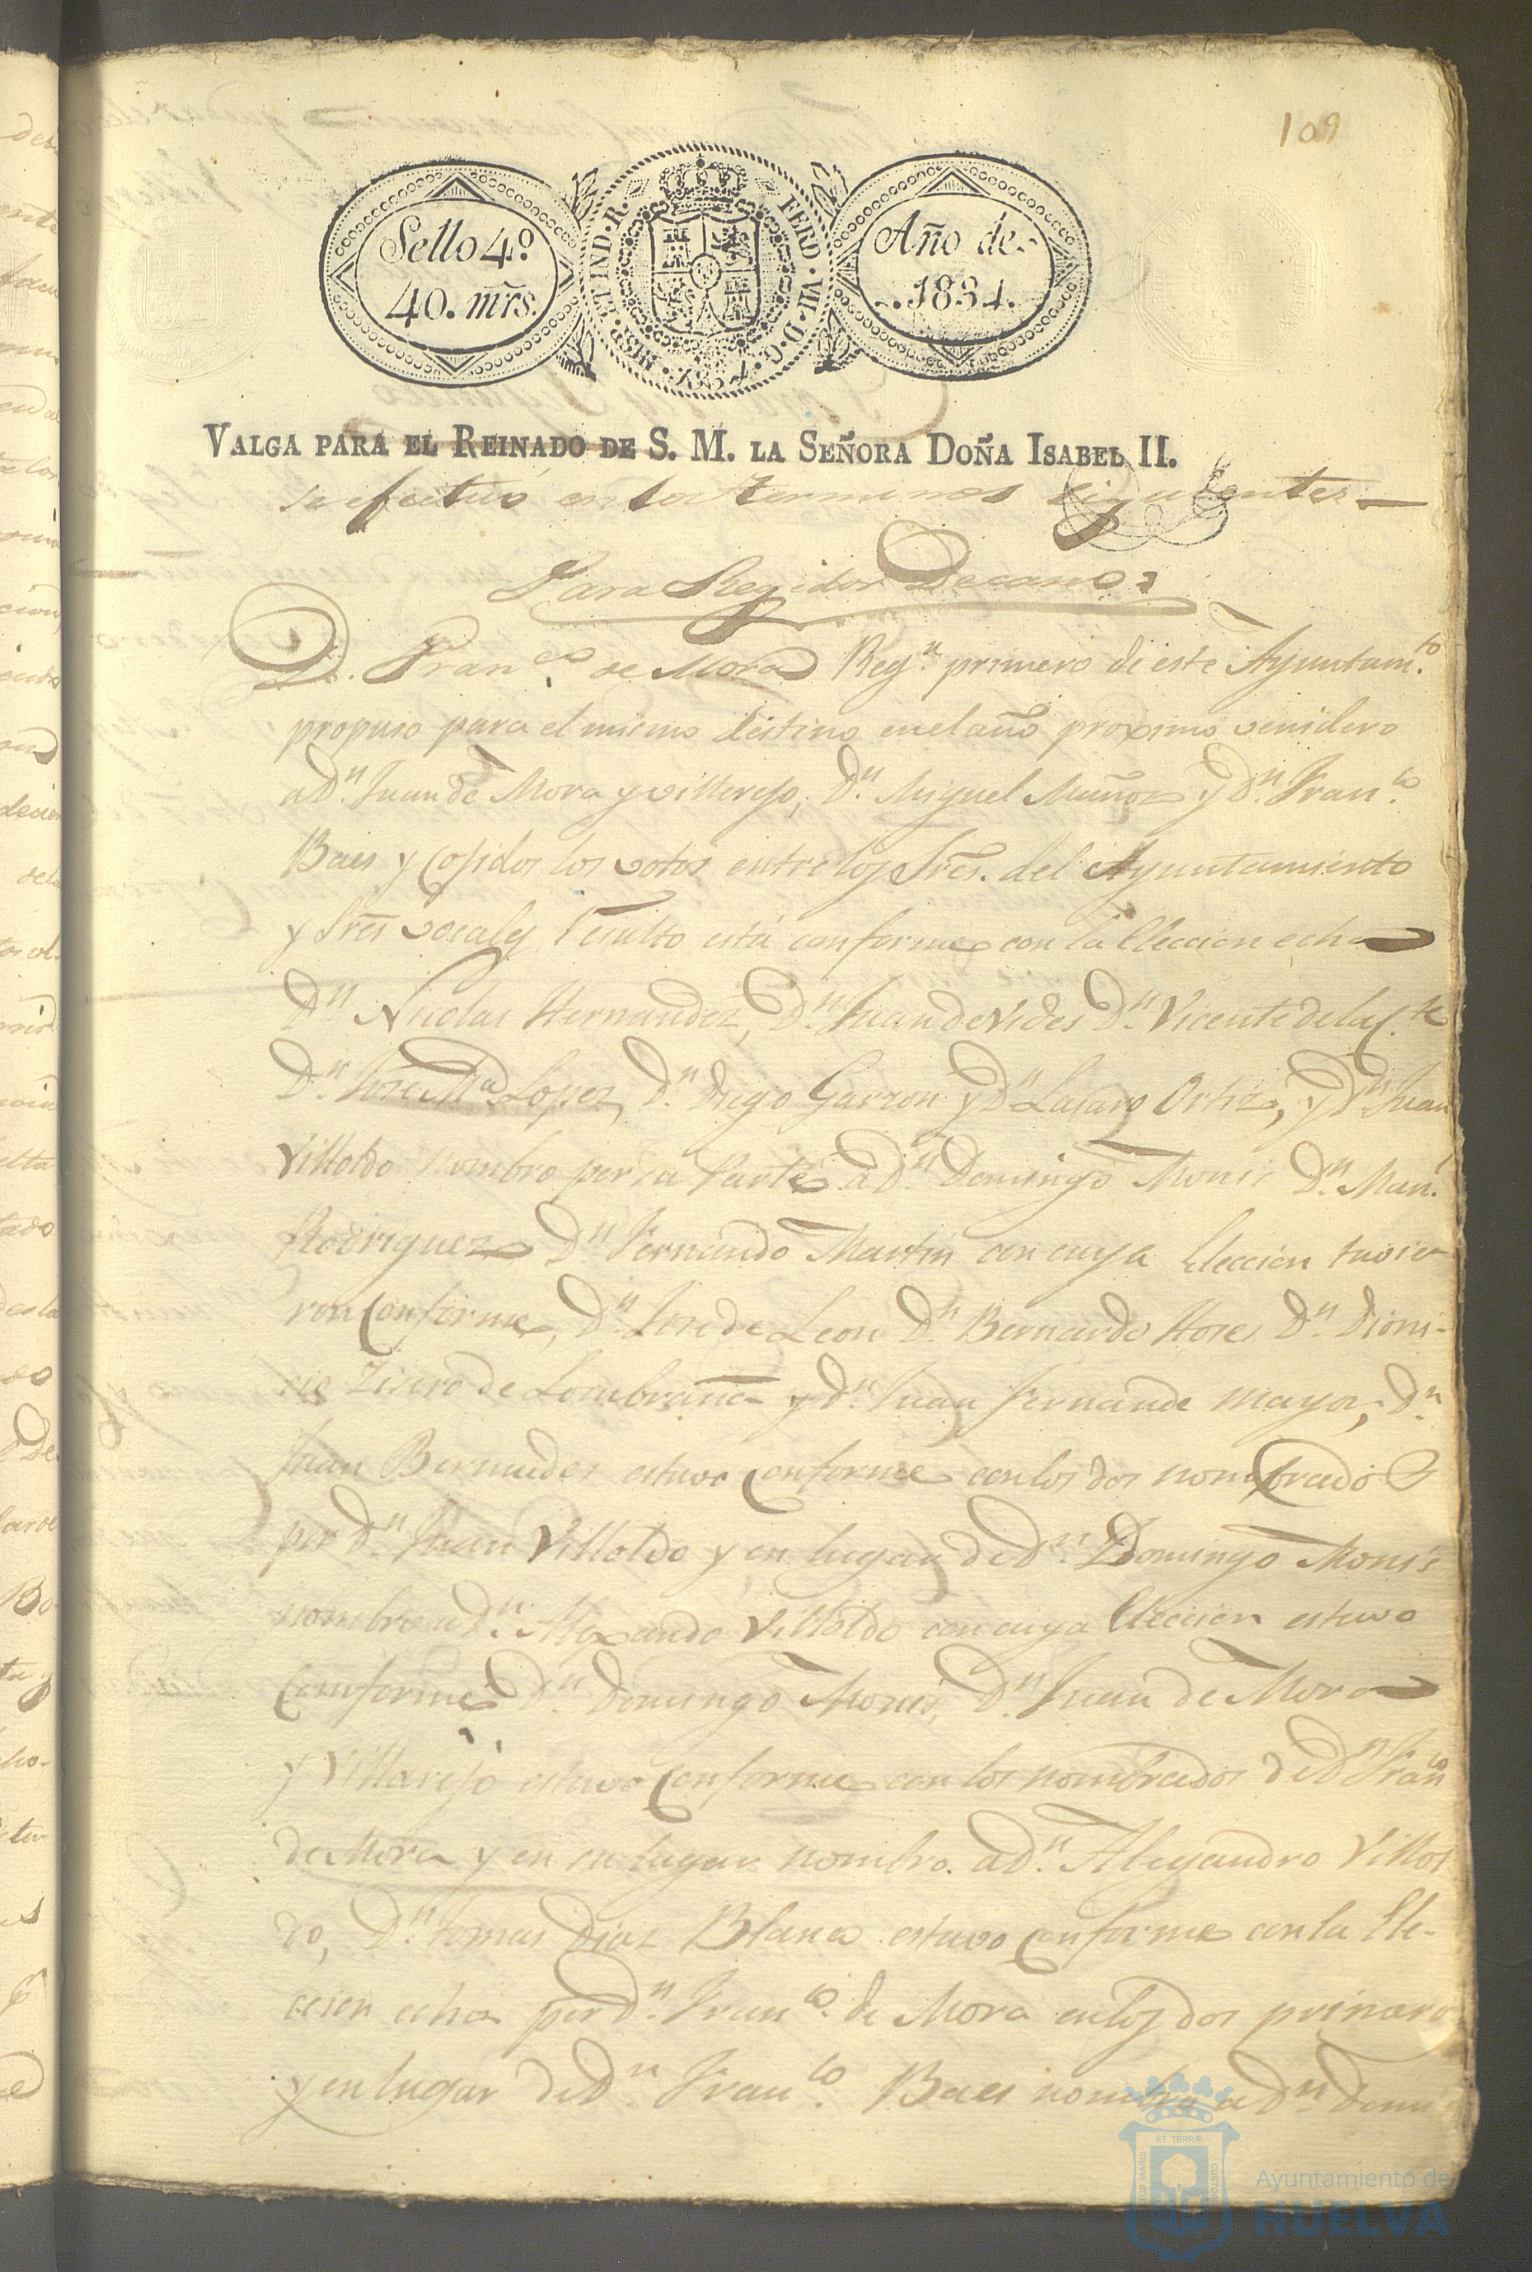 109
Sello 4º
40. mrs.
HISP. ET IND. R. FERD. VII. D. G.
Año de
1834.
VALGA PARA EL REINADO DE S. M. LA SEÑORA DOÑA ISABEL II.
se efectuó en los terminos siguientes
Para Regidor Decano
D. Franco. de Mora Regr. primero de este Ayuntamto.
propuso para el mismo destino en el año proximo venidero
a Dn. Juan de Mora y Villerejo, Dn. Miguel Muñoz y Dn. Franco.
Baes y Cojidos los votos entre los Sres. del Ayuntamiento
y Sres vocales Resulto está conforme con la Eleccion echa
Dn Nicolas Hernandez, Dn. Juan de Vides Dn. Vicente de la
Dn. Jose Ma. Lopez, Dn. Diego Garzon y Dn Lasaro Ortiz, y Dn Juan
Villoldo nombro por su Parte a Dn Domingo Monis Dn. Manl.
Rodriguez Dn Fernando Martin con cuya Eleccion tuvie
ron Conforme, Dn. Jose de Leon Dn. Bernardo Hore Dn. Dioni-
cio de Lombraña y Dn. Juan Fernande mayor, Dn
Juan Bermudes estuvo Conforme con los dos nombrados
por Dn. Juan Villoldo y en lugar de Dn. Domingo Monis
nombro a Dn. Alexando Villoldo con cuya Eleccion estuvo
Comforme Dn Domingo Monis, Dn. Juan de Mora
y Villarejo estuvo Conforme con los nombrados de Dn Franco
de Mora y en su lugar nombro a Dn. Alejandro Villol
do, Dn. tomas Diaz Blanco estuvo Conforme con la Ele-
ccion echa por Dn. Franco. de Mora en los dos primero
y en lugar de Dn Franco. Baes nombro a Dn Domi
Ayuntamiento de
HUELVA